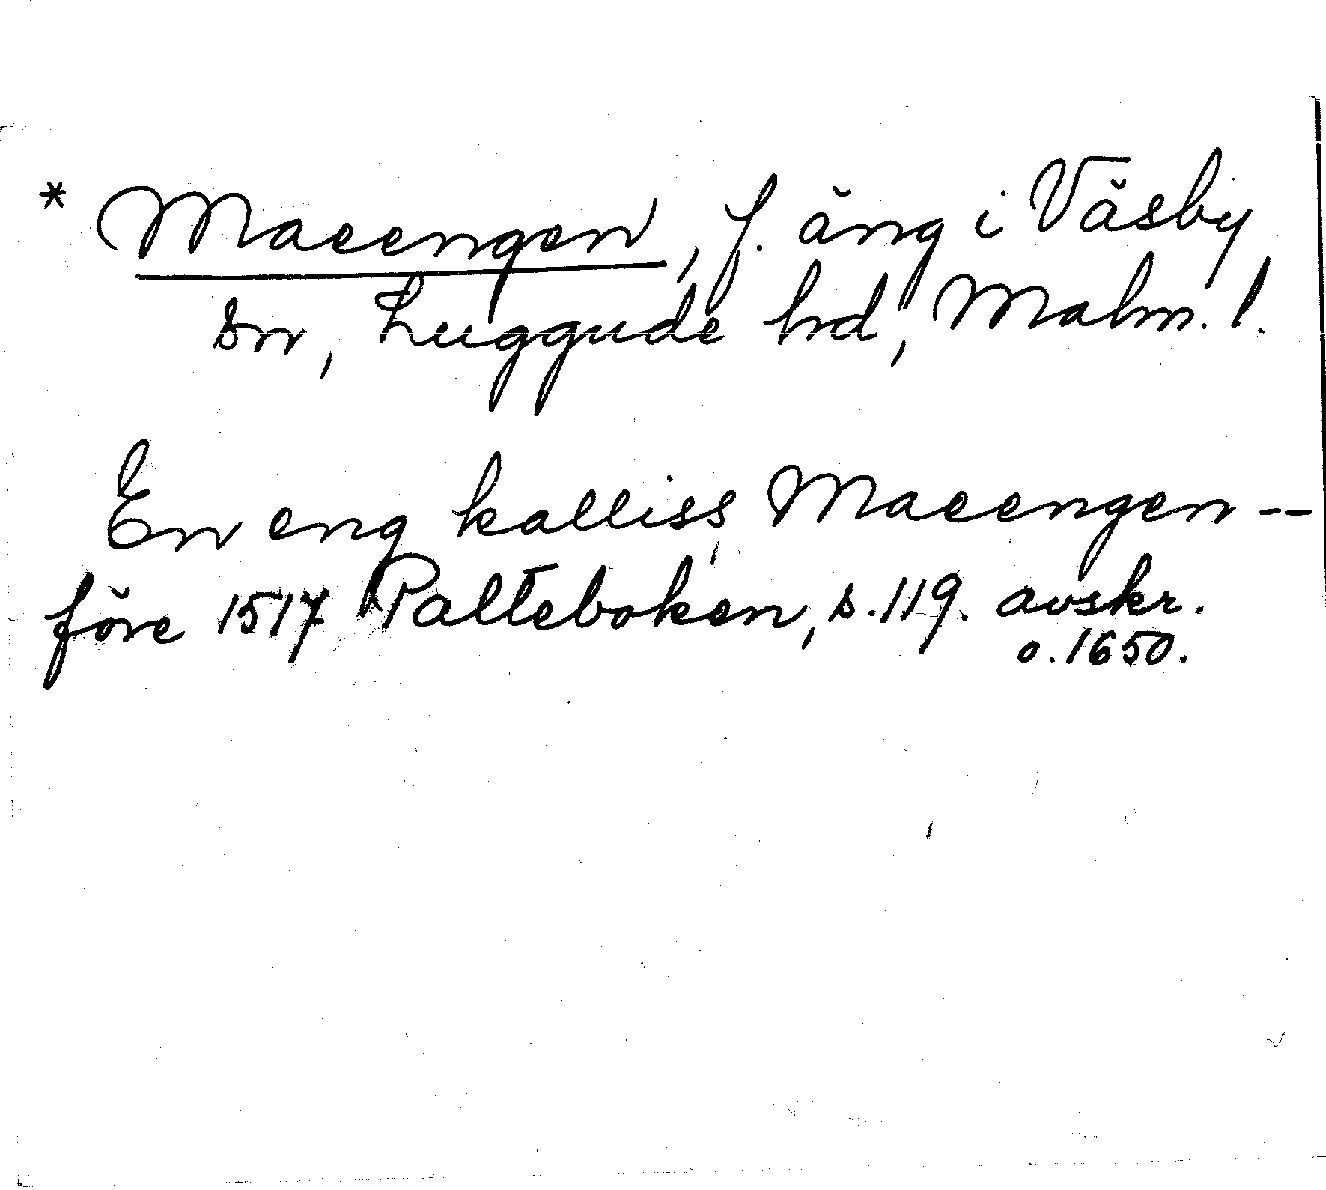 * Maeengen, f. äng i Väsby
sn, Luggude hd, Malm. l.
En eng kalliss Maeengen --
före 1517 Palteboken, s. 119. avskr.
o. 1650.